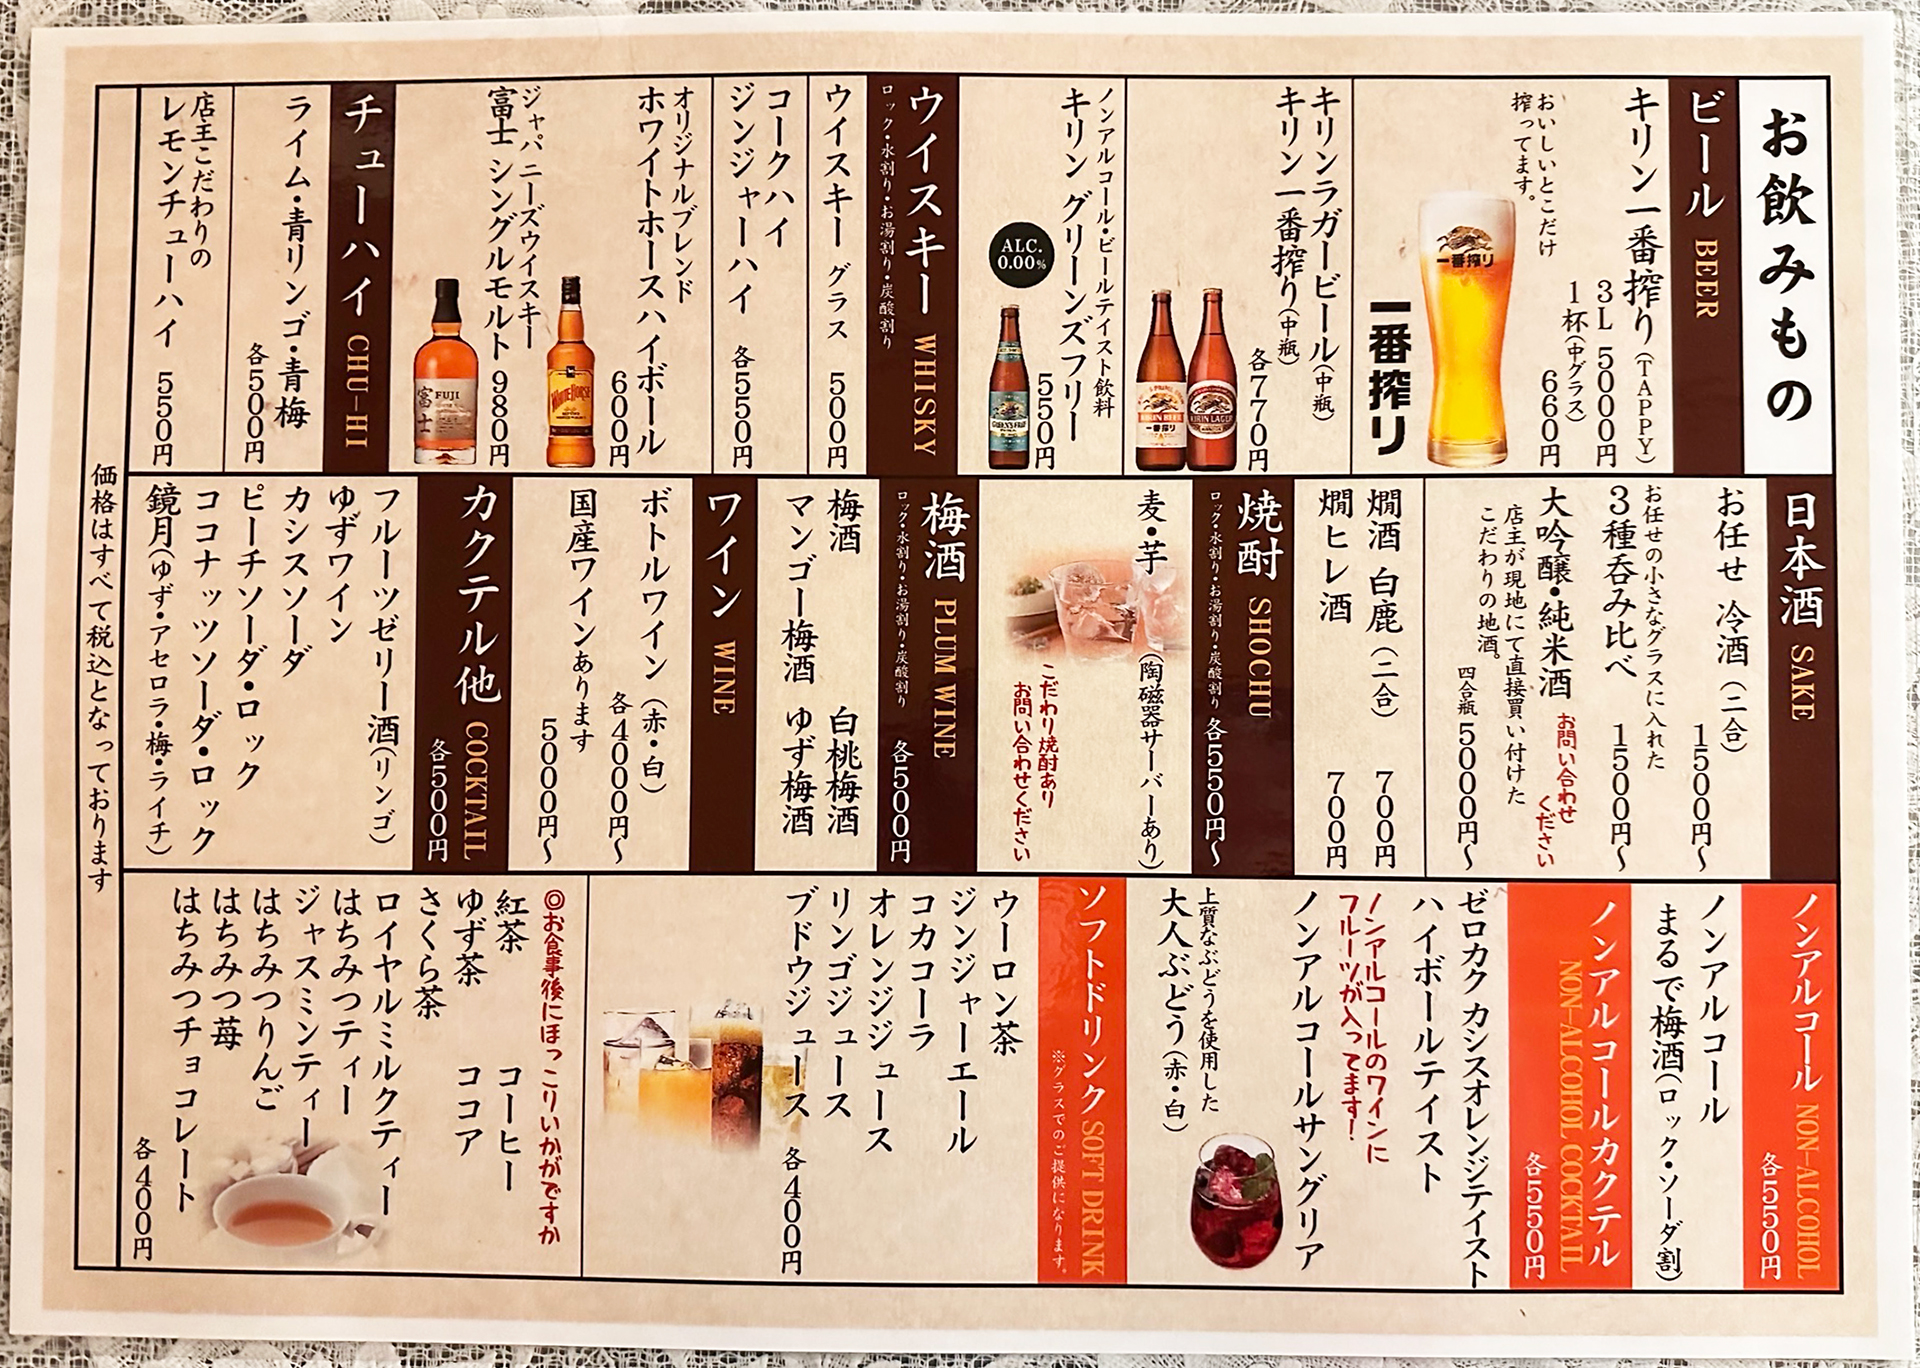 お飲みもの
ビール BEER
キリン一番搾り(TAPPY)
3L 5000円
1杯(中グラス) 660円
おいしいとこだけ
搾ってます。
一番搾り
一番搾り
キリンラガービール(中瓶)
キリン一番搾り(中瓶)
各770円
KIRIN LAGER
KIRIN BEER
一番搾り
ノンアルコール・ビールテイスト飲料
キリン グリーンズフリー
550円
ALC.
0.00%
ウイスキー WHISKY
ロック・水割り・お湯割り・炭酸割り
ウイスキー グラス 500円
コークハイ
ジンジャーハイ 各550円
オリジナルブレンド
ホワイトホースハイボール
600円
WHITE HORSE
ジャパニーズウイスキー
富士 シングルモルト 980円
富士
FUJI
チューハイ CHU-HI
ライム・青リンゴ・青梅
各500円
店主こだわりの
レモンチューハイ 550円
日本酒 SAKE
お任せ 冷酒(二合)
1500円〜
お任せの小さなグラスに入れた
3種呑み比べ 1500円〜
大吟醸・純米酒 お問い合わせ
ください
店主が現地にて直接買い付けた
こだわりの地酒。
四合瓶 5000円〜
燗酒 白鹿(二合) 700円
燗ヒレ酒 700円
焼酎 SHOCHU
ロック・水割り・お湯割り・炭酸割り 各550円〜
麦・芋 (陶磁器サーバーあり)
こだわり焼酎あり
お問い合わせください
梅酒 PLUM WINE
ロック・水割り・お湯割り・炭酸割り 各500円
梅酒 白桃梅酒
マンゴー梅酒 ゆず梅酒
ワイン WINE
ボトルワイン(赤・白)
各4000円〜
国産ワインあります
5000円〜
カクテル他 COCKTAIL
各500円
フルーツゼリー酒(リンゴ)
ゆずワイン
カシスソーダ
ピーチソーダ・ロック
ココナッツソーダ・ロック
鏡月(ゆず・アセロラ・梅・ライチ)
ノンアルコール NON-ALCOHOL
各550円
ノンアルコール
まるで梅酒(ロック・ソーダ割)
ノンアルコールカクテル
NON-ALCOHOL COCKTAIL
各550円
ゼロカク カシスオレンジテイスト
ハイボールテイスト
ノンアルコールのワインに
フルーツが入ってます!
ノンアルコールサングリア
上質なぶどうを使用した
大人ぶどう(赤・白)
ソフトドリンク SOFT DRINK
※グラスでのご提供になります。
ウーロン茶
ジンジャーエール
コカコーラ
オレンジジュース
リンゴジュース
ブドウジュース
各400円
◎お食事後にほっこりいかがですか
紅茶 コーヒー
ゆず茶 ココア
さくら茶
ロイヤルミルクティー
はちみつティー
ジャスミンティー
はちみつりんご
はちみつ苺
はちみつチョコレート
各400円
価格はすべて税込となっております